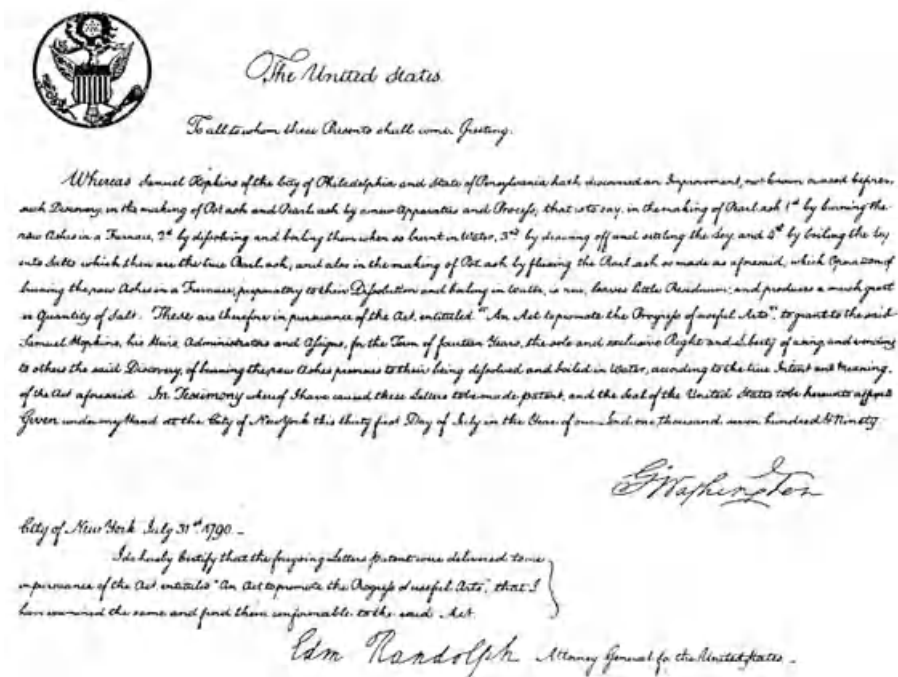 The United States
To all to whom these Presents shall come Greeting.
Whereas Samuel Hopkins of the City of Philadelphia and State of Pensylvania hath discovered an Improvement, not known or used before,
such Discovery, in the making of Pot ash and Pearl ash by a new Apparatus and Process; that is to say, in the making of Pearl ash 1st by burning the
raw Ashes in a Furnace, 2d by dissolving and boiling them when so burnt in Water, 3rd by drawing off and settling the Ley, and 4th by boiling the Ley
into Salts which then are the true Pearl ash; and also in the making of Pot ash by fluxing the Pearl ash so made as aforesaid; which Operation of
burning the raw Ashes in a Furnace, preparatory to their Dissolution and boiling in Water, is new, leaves little Residuum; and produces a much great
er Quantity of Salt: These are therefore in pursuance of the Act, entituled "An Act to promote the Progress of useful Arts", to grant to the said
Samuel Hopkins, his Heirs, Administrators and Assigns, for the Term of fourteen Years, the sole and exclusive Right and Liberty of using and vending
to others the said Discovery, of burning the raw Ashes previous to their being dissolved and boiled in Water, according to the true Intent and Meaning
of the Act aforesaid. In Testimony whereof I have caused these Letters to be made patent, and the Seal of the United States to be hereunto affixed
Given under my Hand at the City of New York this thirty first Day of July in the Year of our Lord one thousand seven hundred & Ninety.
G Washington
City of New York July 31st 1790. –
I do hereby Certify that the foregoing Letters patent were delivered to me
in pursuance of the Act, entituled "An Act to promote the Progress of useful Arts"; that I
have examined the same and find them conformable to the said Act.
Edm Randolph Attorney General for the United States. –